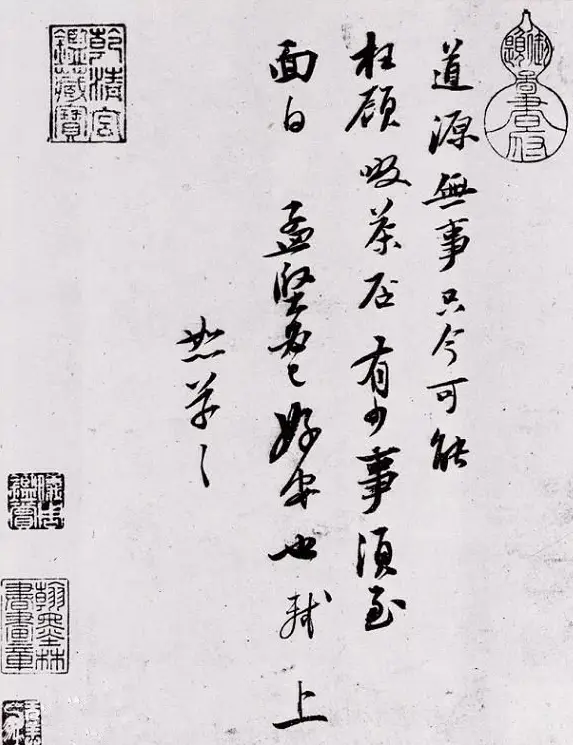 道源無事只今可能
枉顧啜茶否有少事須至
面白 孟堅必已好安也 軾上
恕草草
乾清宮
鑑藏寶
儀周
鑑賞
翰墨林
書畫章